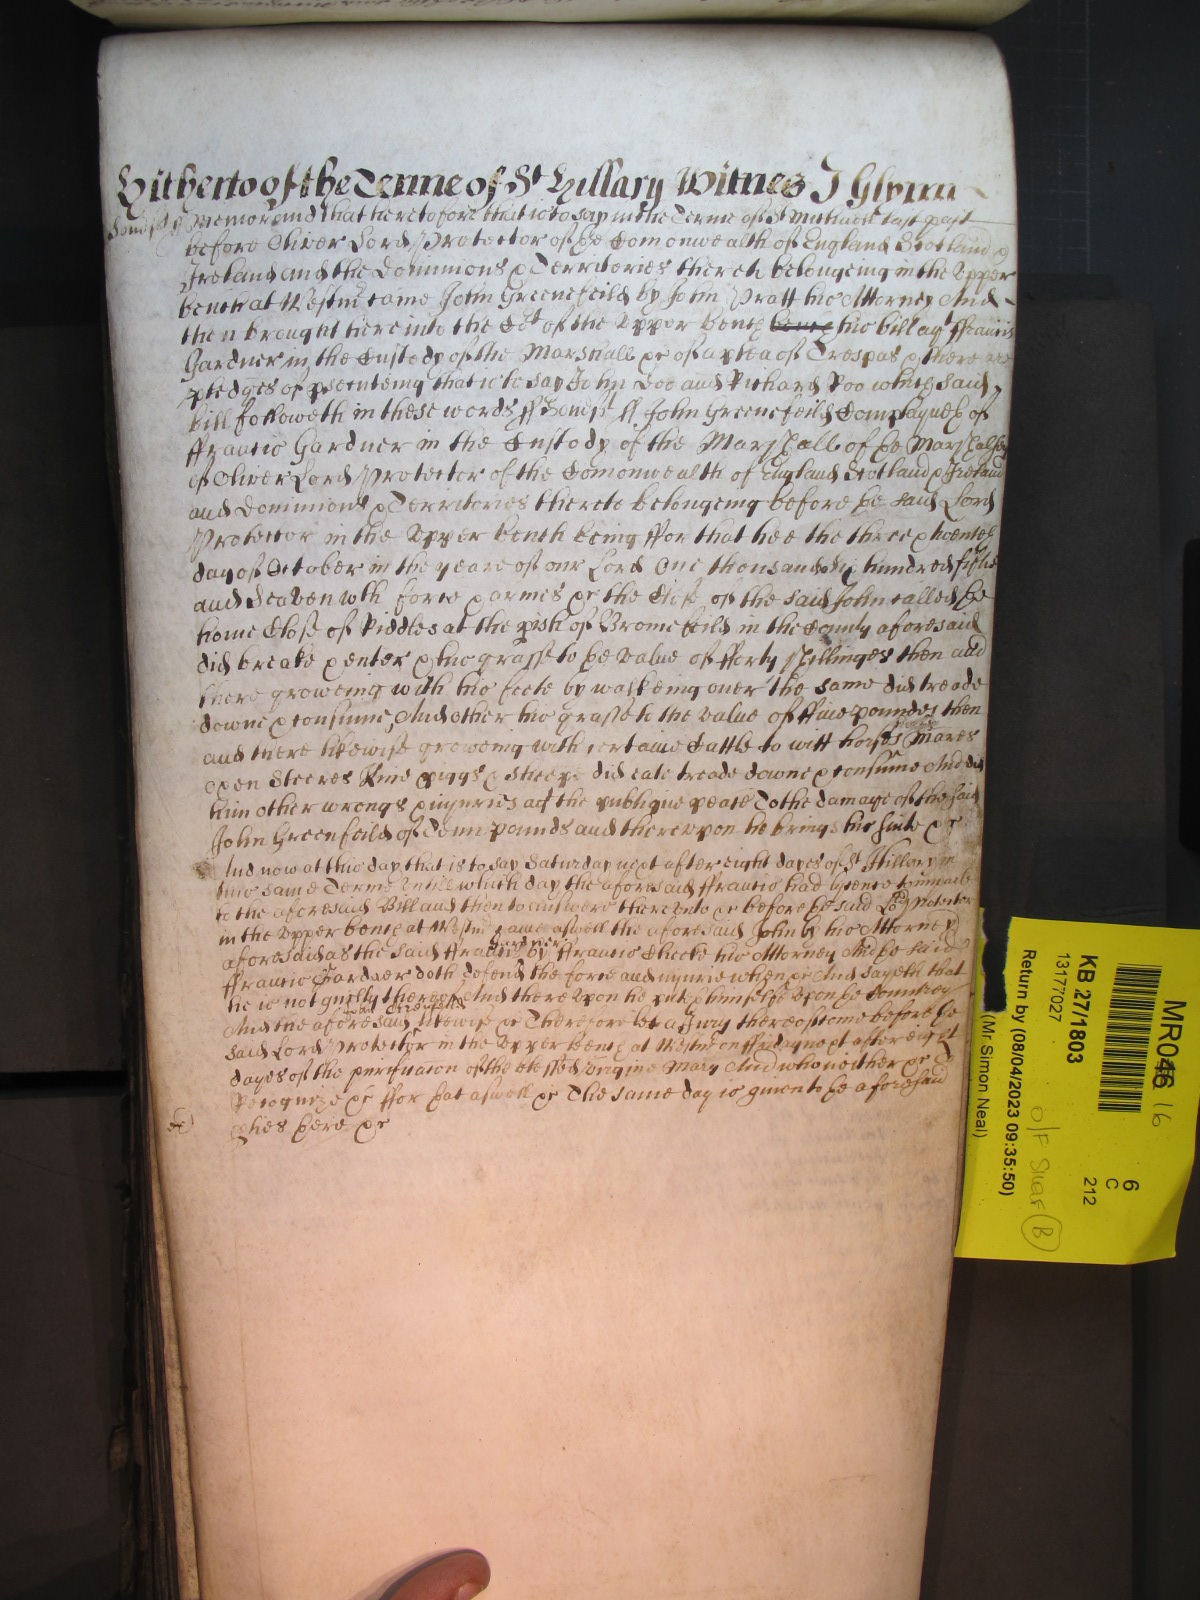 Hitherto of the Terme of St Hillary Witnes J Glynn
Somst ss Memorand that heretofore that is to say in the Terme of St Michaell last past
before Oliver Lord Protector of the Comonwealth of England Scotland &
Ireland and the Dominions & Territories thereto belongeing in the Upper
bench at Westm came John Greenefeild by John Pratt his Attorney And
then brought here into the Cort of the Upper bench bench his bill agt ffrancis
Gardner in the Custody of the Marshall &c of a plea of Trespas & there are
pledges of psecuteing that is to say John Doe and Richard Roo which said
bill followeth in these words ss Somst ss John Greenefeild Complayneth of
ffrancis Gardner in the Custody of the Marshall of the Marshalsey
of Oliver Lord Protector of the Comonwealth of England Scotland & Ireland
and Dominions & Territories thereto belongeing before the said Lord
Protector in the Upper bench being ffor that hee the three & twentieth
day of October in the yeare of our Lord One thousand six hundred fiftie
and Seaven wth force & armes &c the Close of the said John called the
home Close of Riddles at the pish of Bromefeild in the County aforesaid
did breake & enter & his grasse to the value of fforty shillinges then and
there groweing with his feete by walkeing over the same did treade
downe & consume And other his grasse to the value of ffive poundes then
and there likewise groweing with certaine Cattle to witt horses Mares
oxen Steeres Kine piggs & sheepe did eate treade downe & consume And did
him other wrongs & injuries agt the publique peace To the damage of the said
John Greenfeild of Tenn pounds and thereupon he brings his suite &c
And now at this day that is to say Saturday next after eight dayes of St Hillary in
this same Terme Untill which day the aforesaid ffrancis had licence to imparle
to the aforesaid Bill and then to answere thereunto &c before the said Lord Protector
in the Upper bench at Westm came aswell the aforesaid John by his Attorney
aforesaid as the said ffrancis Gardner by ffrancis Cheeke his Attorney And the said
ffrancis Gardner doth defend the force and injurie when &c And sayeth that
he is not guilty thereof And thereupon he puteth himselfe Upon the Countrey
And the aforesaid John Greenfeild likewise &c Therefore let a Jury thereof come before the
said Lord Protector in the Upper bench at Westm on ffriday next after eight
dayes of the purificacon of the blessed Virgine Mary And who neither &c To
Recognize &c ffor that aswell &c The same day is given to the aforesaid
pties here &c
MR046 16
KB 27/1803
13177027
Return by (08/04/2023 09:35:50)
(Mr Simon Neal)
6
C
212
O/F Shaf B